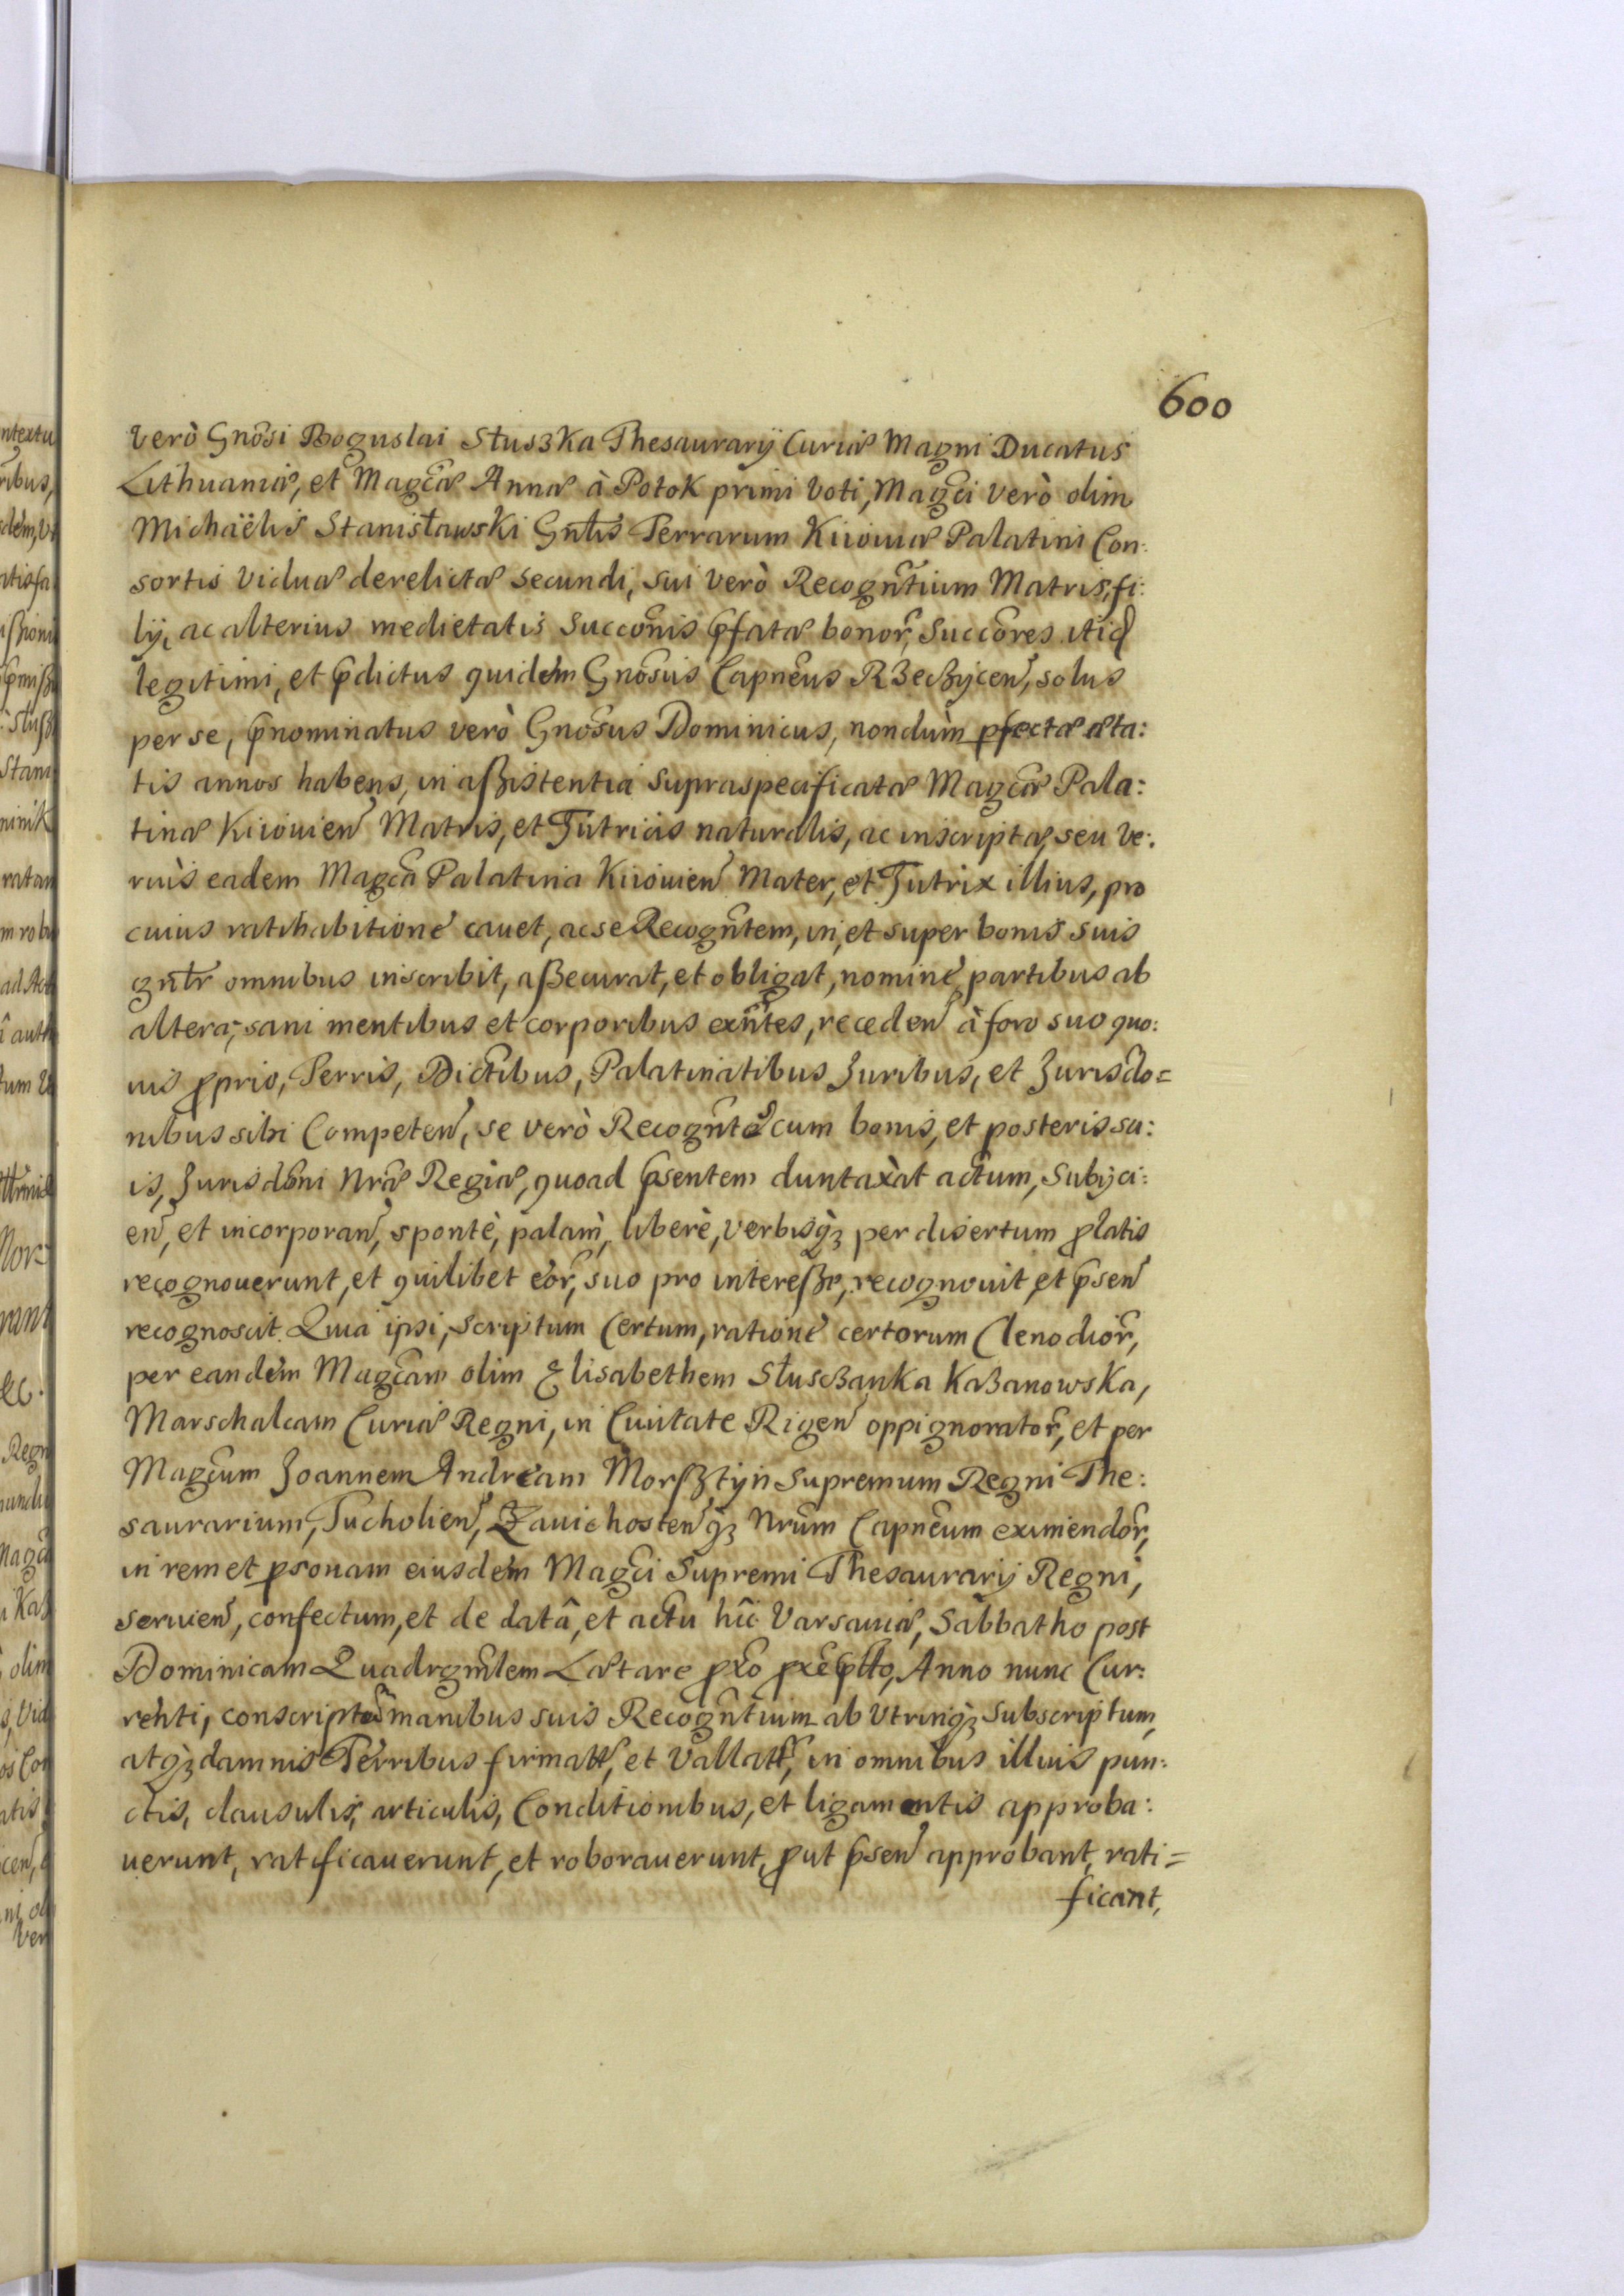 600
verò Gnosi Boguslai Słuszka Thesaurarÿ Curiæ Magni Ducatus
Lithuaniæ, et Magcæ Annæ à Potok primi voti, Magci verò olim
Michaëlis Stanisławski Gnlis Terrarum Kiioviæ Palatini Con:
sortis viduæ derelictæ secundi, sui verò Recogntium Matris, fi:
lÿ, ac alterius medietatis Succonis pfatæ bonor, Succores itid
legitimi, et pdictus quidem Gnosus Capneus Rzeczÿcen, solus
per se, pnominatus verò Gnosus Dominicus, nondùm pfectæ æta:
tis annos habens, in assistentia supraspecificatæ Magcæ Pala:
tinæ Kiiovien Matris, et Tutricis naturalis, ac inscriptæ, seu ve:
riùs eadem Magca Palatina Kiiovien Mater, et Tutrix illius, pro
cuius ratihabitione cavet, ac se Recogntem, in, et super bonis suis
gnlr omnibus inscribit, assecurat, et obligat, nomine, partibus ab
altera, sani mentibus et corporibus exntes, receden à foro suo quo:
vis prprio, Terris, Dictibus, Palatinatibus Juribus, et Jurisdo=
nibus sibi Competen, se verò Recogntes cum bonis, et posteris su:
is, Jurisdoni Nræ Regiæ, quoad psentem duntaxàt actum, Subÿci:
en, et incorporan, spontè, palam, liberè, verbisq₃ per disertum prlatis
recognoverunt, et quilibet eor, suo pro interesse, recognovit, et psen
recognoscit. Quia ipsi, Scriptum Certum, ratione certorum Clenodior,
per eandem Magcam olim Elisabethem Słusczanka Kazanowska,
Marschalcam Curiæ Regni, in Civitate Rigen oppignorator, et per
Magcum Joannem Andream Morsztÿn Supremum Regni The:
saurarium, Tucholien, Zavichostenq₃ Nrum Capneum eximendor,
in rem et psonam eiusdem Magci Supremi Thesaurarÿ Regni,
servien, confectum, et de datâ, et actu hîc Varsaviæ, Sabbatho post
Dominicam Quadrgmlem Lætare prxo Anno nunc Cur:
renti, manibus suis Recogntium ab utrinq₃ Subscriptum,
atq₃ damnis Terribus firmatt, et Vallatt, in omnibus illius pun:
ctis, clausulis, articulis, Conditionibus, et ligamentis approba:
verunt, ratificaverunt, et roboraverunt, prut psen approbant, rati=
ficant,